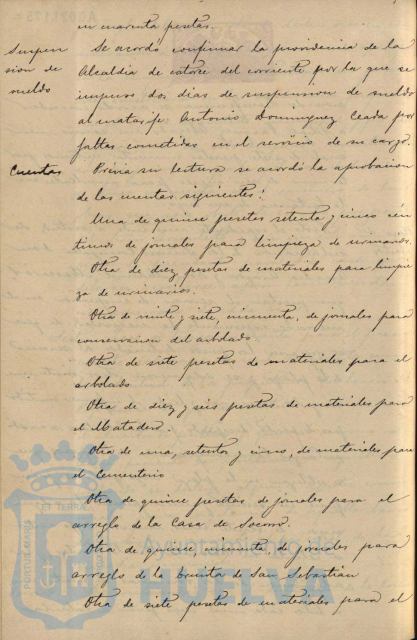 en cuarenta pesetas.
Suspen
sion de
sueldo
Se acordó confirmar la providencia de la
Alcaldia de catorce del corriente por la que se
impuso dos dias de suspension de sueldo
al matarife Antonio Dominguez Ceada por
faltas cometidas en el servicio de su cargo.
Cuentas
Previa su lectura se acordó la aprobacion
de las cuentas siguientes:
Una de quince pesetas setenta y cinco cén
timos de jornales para limpieza de urinarios.
Otra de diez pesetas de materiales para limpie
za de urinarios.
Otra de veinte y siete, cincuenta, de jornales para
conservacion del arbolado.
Otra de siete pesetas de materiales para el
arbolado
Otra de diez y seis pesetas de materiales para
el Matadero.
Otra de una, setenta y cinco, de materiales para
el Cementerio
Otra de quince pesetas de jornales para el
arreglo de la Casa de Socorro.
Otra de quince cincuenta de jornales para
arreglo de la Ermita de San Sebastian
Otra de siete pesetas de materiales para el
Ayuntamiento de
HUELVA